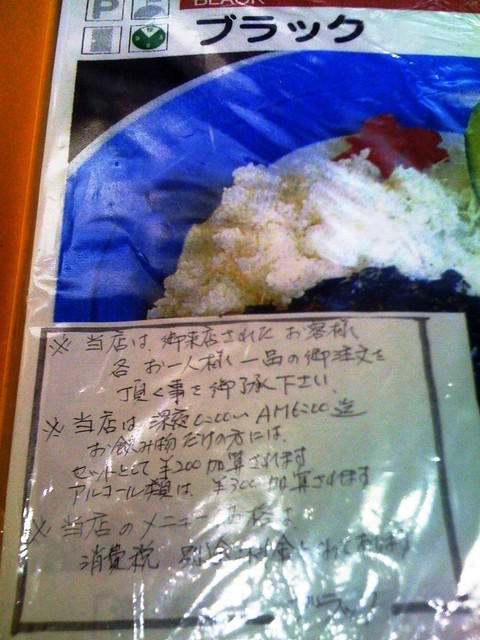 P
BLACK
ブラック
※当店は、御来店されたお客様
各お一人様一品の御注文を
頂く事を御了承下さい。
※当店は深夜 AM 迄
お飲み物だけの方には、
セットとして¥200加算されます
アルコール類は、¥300加算されます
※当店のメニュー価格は
消費税